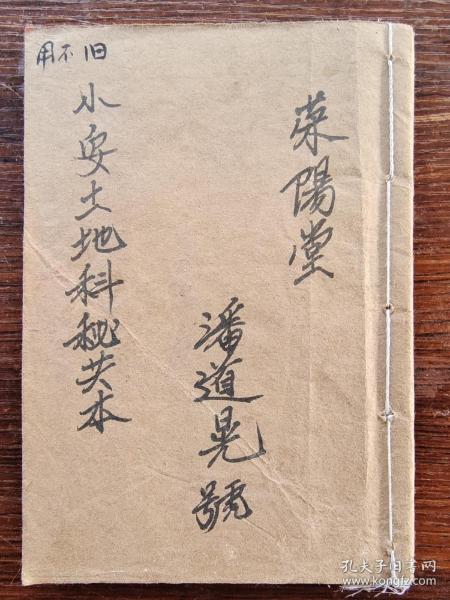 荥陽堂
潘道晃號
小安土地科秘共本
旧不用
孔夫子旧书网
www.kongfz.com